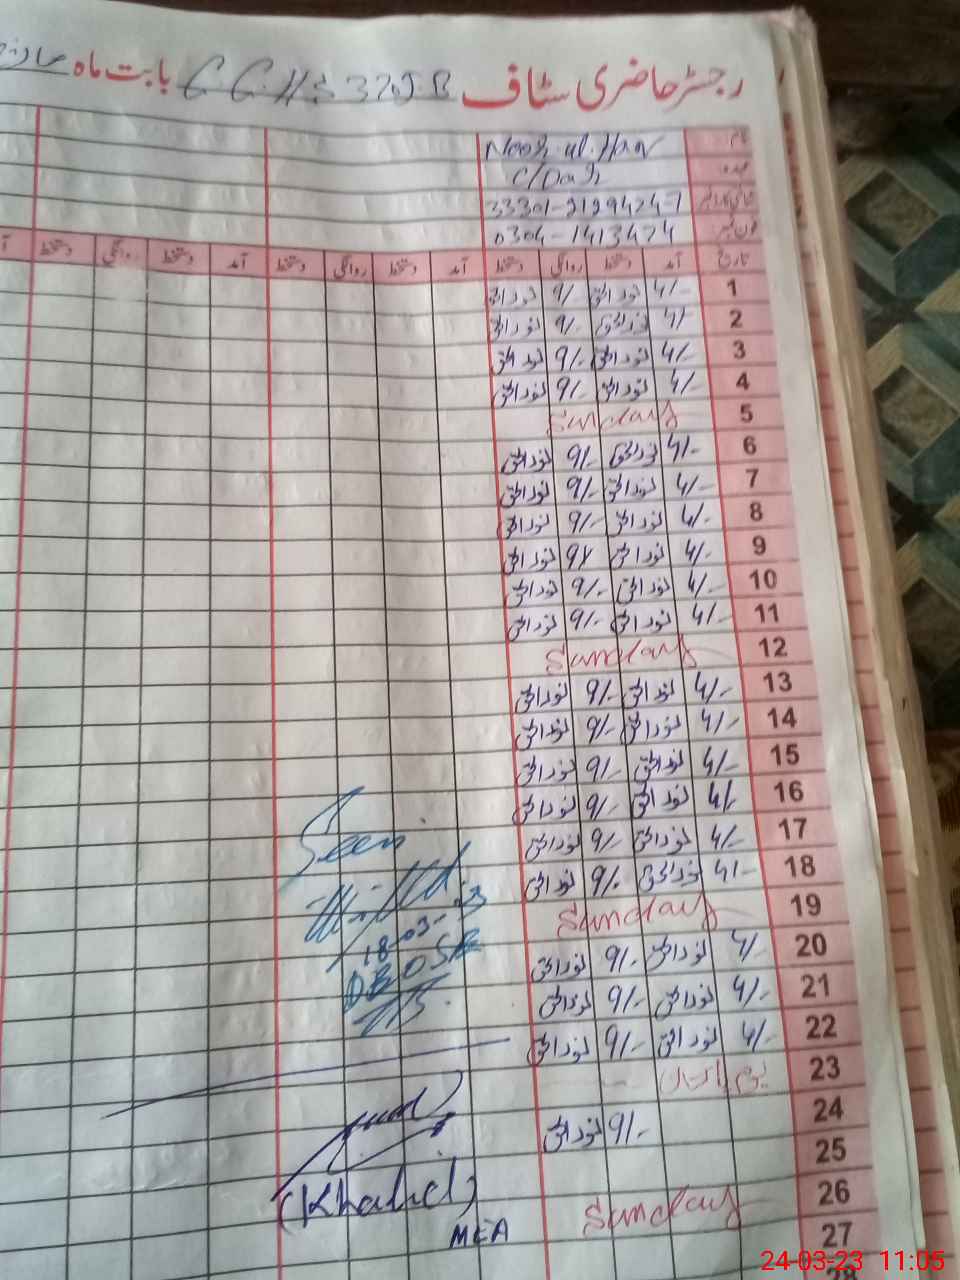 رجسٹر حاضری سٹاف GGHS 320J.B بابت ماہ
نام Noor-ul-Haq
عہدہ C/Dar
شناختی کارڈ نمبر 33301-2129424-7
فون نمبر 0304-1413424
تاریخ آمد دستخط روانگی دستخط آمد دستخط روانگی دستخط آمد دستخط روانگی دستخط
1 4/- نورالحق 9/- نورالحق
2 4/- نورالحق 9/- نورالحق
3 4/- نورالحق 9/- نورالحق
4 4/- نورالحق 9/- نورالحق
5 Sunday
6 4/- نورالحق 9/- نورالحق
7 4/- نورالحق 9/- نورالحق
8 4/- نورالحق 9/- نورالحق
9 4/- نورالحق 9/- نورالحق
10 4/- نورالحق 9/- نورالحق
11 4/- نورالحق 9/- نورالحق
12 Sunday
13 4/- نورالحق 9/- نورالحق
14 4/- نورالحق 9/- نورالحق
15 4/- نورالحق 9/- نورالحق
16 4/- نورالحق 9/- نورالحق
17 4/- نورالحق 9/- نورالحق
18 4/- نورالحق 9/- نورالحق
19 Sunday
20 4/- نورالحق 9/- نورالحق
21 4/- نورالحق 9/- نورالحق
22 4/- نورالحق 9/- نورالحق
23 یوم پاکستان
24 9/- نورالحق
25
26 Sunday
27
28
Seen
18-03-23
(Khalid)
MEA
24-03-23 11:05